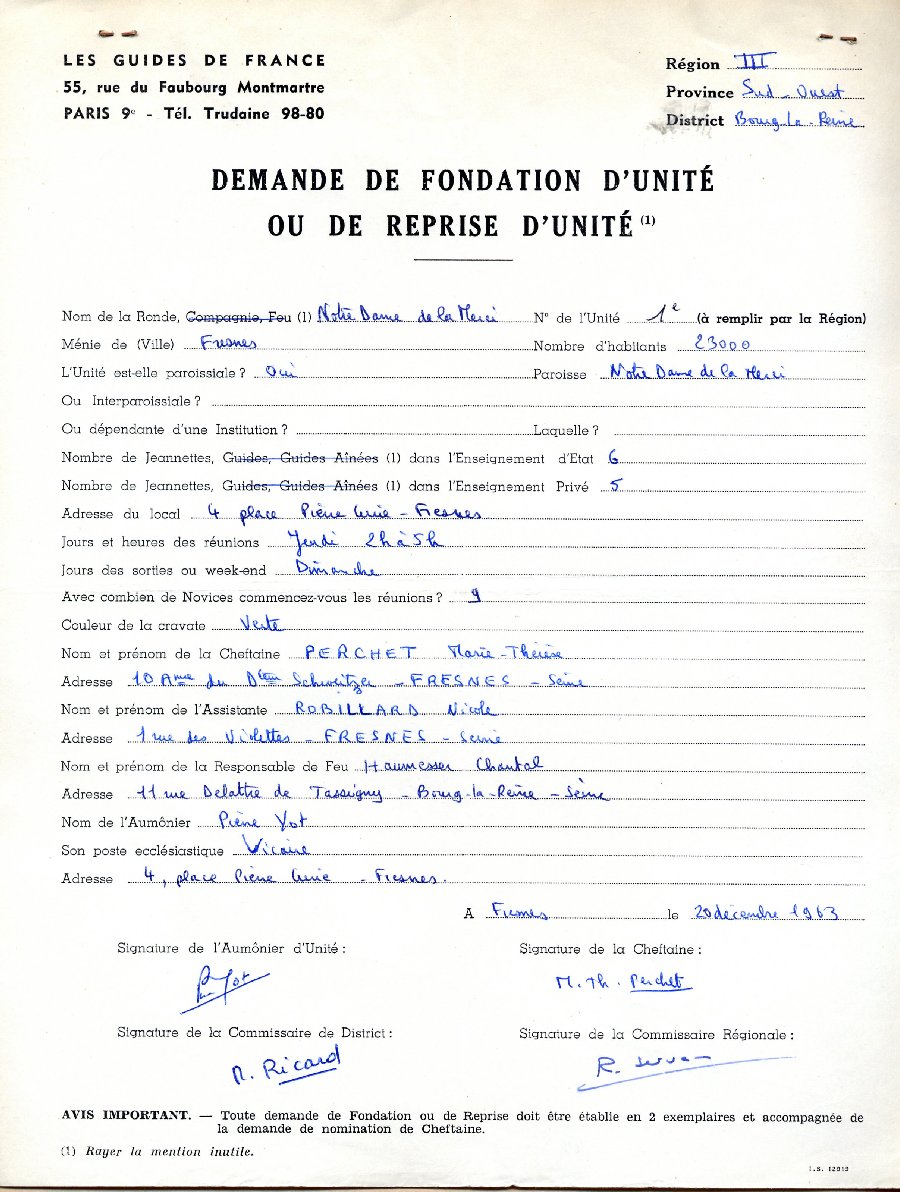 LES GUIDES DE FRANCE
55, rue du Faubourg Montmartre
PARIS 9e - Tél. Trudaine 98-80
Région III
Province Sud-Ouest
District Bourg-la-Reine
DEMANDE DE FONDATION D'UNITÉ
OU DE REPRISE D'UNITÉ (1)
Nom de la Ronde, Compagnie, Feu (1) Notre Dame de la Merci N° de l'Unité 1e (à remplir par la Région)
Ménie de (Ville) Fresnes Nombre d'habitants 23000
L'Unité est-elle paroissiale ? Oui Paroisse Notre Dame de la Merci
Ou Interparoissiale ?
Ou dépendante d'une Institution ? Laquelle ?
Nombre de Jeannettes, Guides, Guides Aînées (1) dans l'Enseignement d'Etat 6
Nombre de Jeannettes, Guides, Guides Aînées (1) dans l'Enseignement Privé 5
Adresse du local 4 place Pierre Curie - Fresnes
Jours et heures des réunions Jeudi 2h à 5h
Jours des sorties ou week-end Dimanche
Avec combien de Novices commencez-vous les réunions ? 9
Couleur de la cravate Verte
Nom et prénom de la Cheftaine PERCHET Marie-Thérèse
Adresse 10 Ame du Dteur Schweitzer - FRESNES - Seine
Nom et prénom de l'Assistante ROBILLARD Nicole
Adresse 1 rue des Violettes - FRESNES - Seine
Nom et prénom de la Responsable de Feu Haumesser Chantal
Adresse 11 rue Delattre de Tassigny - Bourg-la-Reine - Seine
Nom de l'Aumônier Pierre Yot
Son poste ecclésiastique Vicaire
Adresse 4, place Pierre Curie - Fresnes.
A Fresnes le 20 décembre 1963
Signature de l'Aumônier d'Unité :
Signature de la Cheftaine :
Yot
M. Th. Perchet
Signature de la Commissaire de District :
Signature de la Commissaire Régionale :
M. Ricard
R.
AVIS IMPORTANT. — Toute demande de Fondation ou de Reprise doit être établie en 2 exemplaires et accompagnée de
la demande de nomination de Cheftaine.
(1) Rayer la mention inutile.